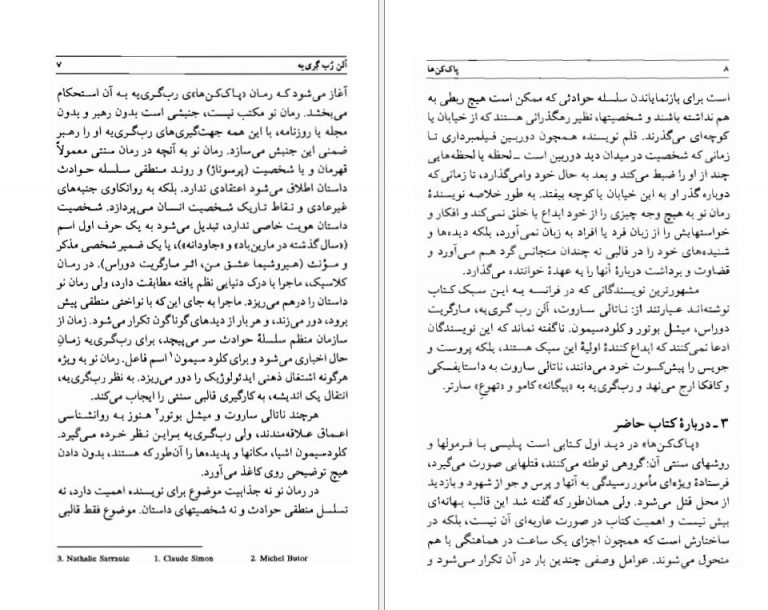 آلن رُب گری‌یه ۷
آغاز می‌شود که رمان «پاک‌کن‌ها»ی رب‌گری‌یه به آن استحکام
می‌بخشد. رمان نو مکتب نیست، جنبشی است بدون رهبر و بدون
مجله یا روزنامه، با این همه جهت‌گیری‌های رب‌گری‌یه او را رهبر
ضمنی این جنبش می‌سازد. رمان نو به آنچه در رمان سنتی معمولاً
قهرمان و یا شخصیت (پرسوناژ) و روند منطقی سلسله حوادث
داستان اطلاق می‌شود اعتقادی ندارد. بلکه به روانکاوی جنبه‌های
غیرعادی و نقاط تاریک شخصیت انسان می‌پردازد. شخصیت
داستان هویت خاصی ندارد، تبدیل می‌شود به یک حرف اول اسم
(«سال گذشته در مارین‌باد» و «جاودانه»)، یا یک ضمیر شخصی مذکر
و مؤنث (هیروشیما عشق من، اثر مارگریت دوراس). در رمان
کلاسیک، ماجرا با درک دنیایی نظم یافته مطابقت دارد، ولی رمان نو
داستان را درهم می‌ریزد. ماجرا به جای این که با نواختی منطقی پیش
برود، دور می‌زند، و هر بار از دیدهای گوناگون تکرار می‌شود. زمان
سازمان منظم سلسلهٔ حوادث سر می‌پیچد، برای رب‌گری‌یه زمانِ
حال اخباری می‌شود و برای کلود سیمون۱ اسم فاعل. رمان نو به ویژه
هرگونه اشتغال ذهنی ایدئولوژیک را دور می‌ریزد. به نظر رب‌گری‌یه،
انتقال یک اندیشه، به کارگیری قالبی سنتی را ایجاب می‌کند.
هرچند ناتالی ساروت و میشل بوتور۲ هنوز به روانشناسی
اعماق علاقه‌مندند، ولی رب‌گری‌یه بر این نظر خرده می‌گیرد.
کلودسیمون اشیا، مکانها و پدیده‌ها را آن‌طور که هستند، بدون دادن
هیچ توضیحی روی کاغذ می‌آورد.
در رمان نو نه جذابیت موضوع برای نویسنده اهمیت دارد، نه
تسلسل منطقی حوادث و نه شخصیتهای داستان. موضوع فقط قالبی
3. Nathalie Sarraute 1. Claude Simon 2. Michel Butor
۸ پاک‌کن‌ها
است برای بازنمایاندن سلسله حوادثی که ممکن است هیچ ربطی به
هم نداشته باشند و شخصیتها، نظیر رهگذرانی هستند که از خیابان یا
کوچه‌ای می‌گذرند. قلم نویسنده همچون دوربین فیلمبرداری تا
زمانی که شخصیت در میدان دید دوربین است ــ لحظه یا لحظه‌هایی
چند از او را ضبط می‌کند و بعد به حال خود وامی‌گذارد، تا زمانی که
دوباره گذر او به این خیابان یا کوچه بیفتد. به طور خلاصه نویسندهٔ
رمان نو به هیچ وجه چیزی را از خود ابداع یا خلق نمی‌کند و افکار و
خواستهایش را از زبان فرد یا افراد به زبان نمی‌آورد، بلکه دیده‌ها و
شنیده‌های خود را در قالبی نه چندان متجانس گرد هم می‌آورد و
قضاوت و برداشت دربارهٔ آنها را به عهدهٔ خواننده می‌گذارد.
مشهورترین نویسندگانی که در فرانسه به این سبک کتاب
نوشته‌اند عبارتند از: ناتالی ساروت، آلن رب گری‌یه، مارگریت
دوراس، میشل بوتور و کلودسیمون. ناگفته نماند که این نویسندگان
ادعا نمی‌کنند که ابداع کنندهٔ اولیهٔ این سبک هستند، بلکه پروست و
جویس را پیش‌کسوت خود می‌دانند، ناتالی ساروت به داستایفسکی
و کافکا ارج می‌نهد و رب‌گری‌یه به «بیگانه» کامو و «تهوعِ» سارتر.
۳ ـ دربارهٔ کتاب حاضر
«پاک‌کن‌ها» در دید اول کتابی است پلیسی با فرمولها و
روشهای سنتی آن: گروهی توطئه می‌کنند، قتلهایی صورت می‌گیرد،
فرستادهٔ ویژه‌ای مأمور رسیدگی به آنها و پرس و جو از شهود و بازدید
از محل قتل می‌شود. ولی همان‌طور که گفته شد این قالب بهانه‌ای
بیش نیست و اهمیت کتاب در صورت عاریه‌ای آن نیست، بلکه در
ساختارش است که همچون اجزای یک ساعت در هماهنگی با هم
متحول می‌شوند. عوامل وصفی چندین بار در آن تکرار می‌شود و